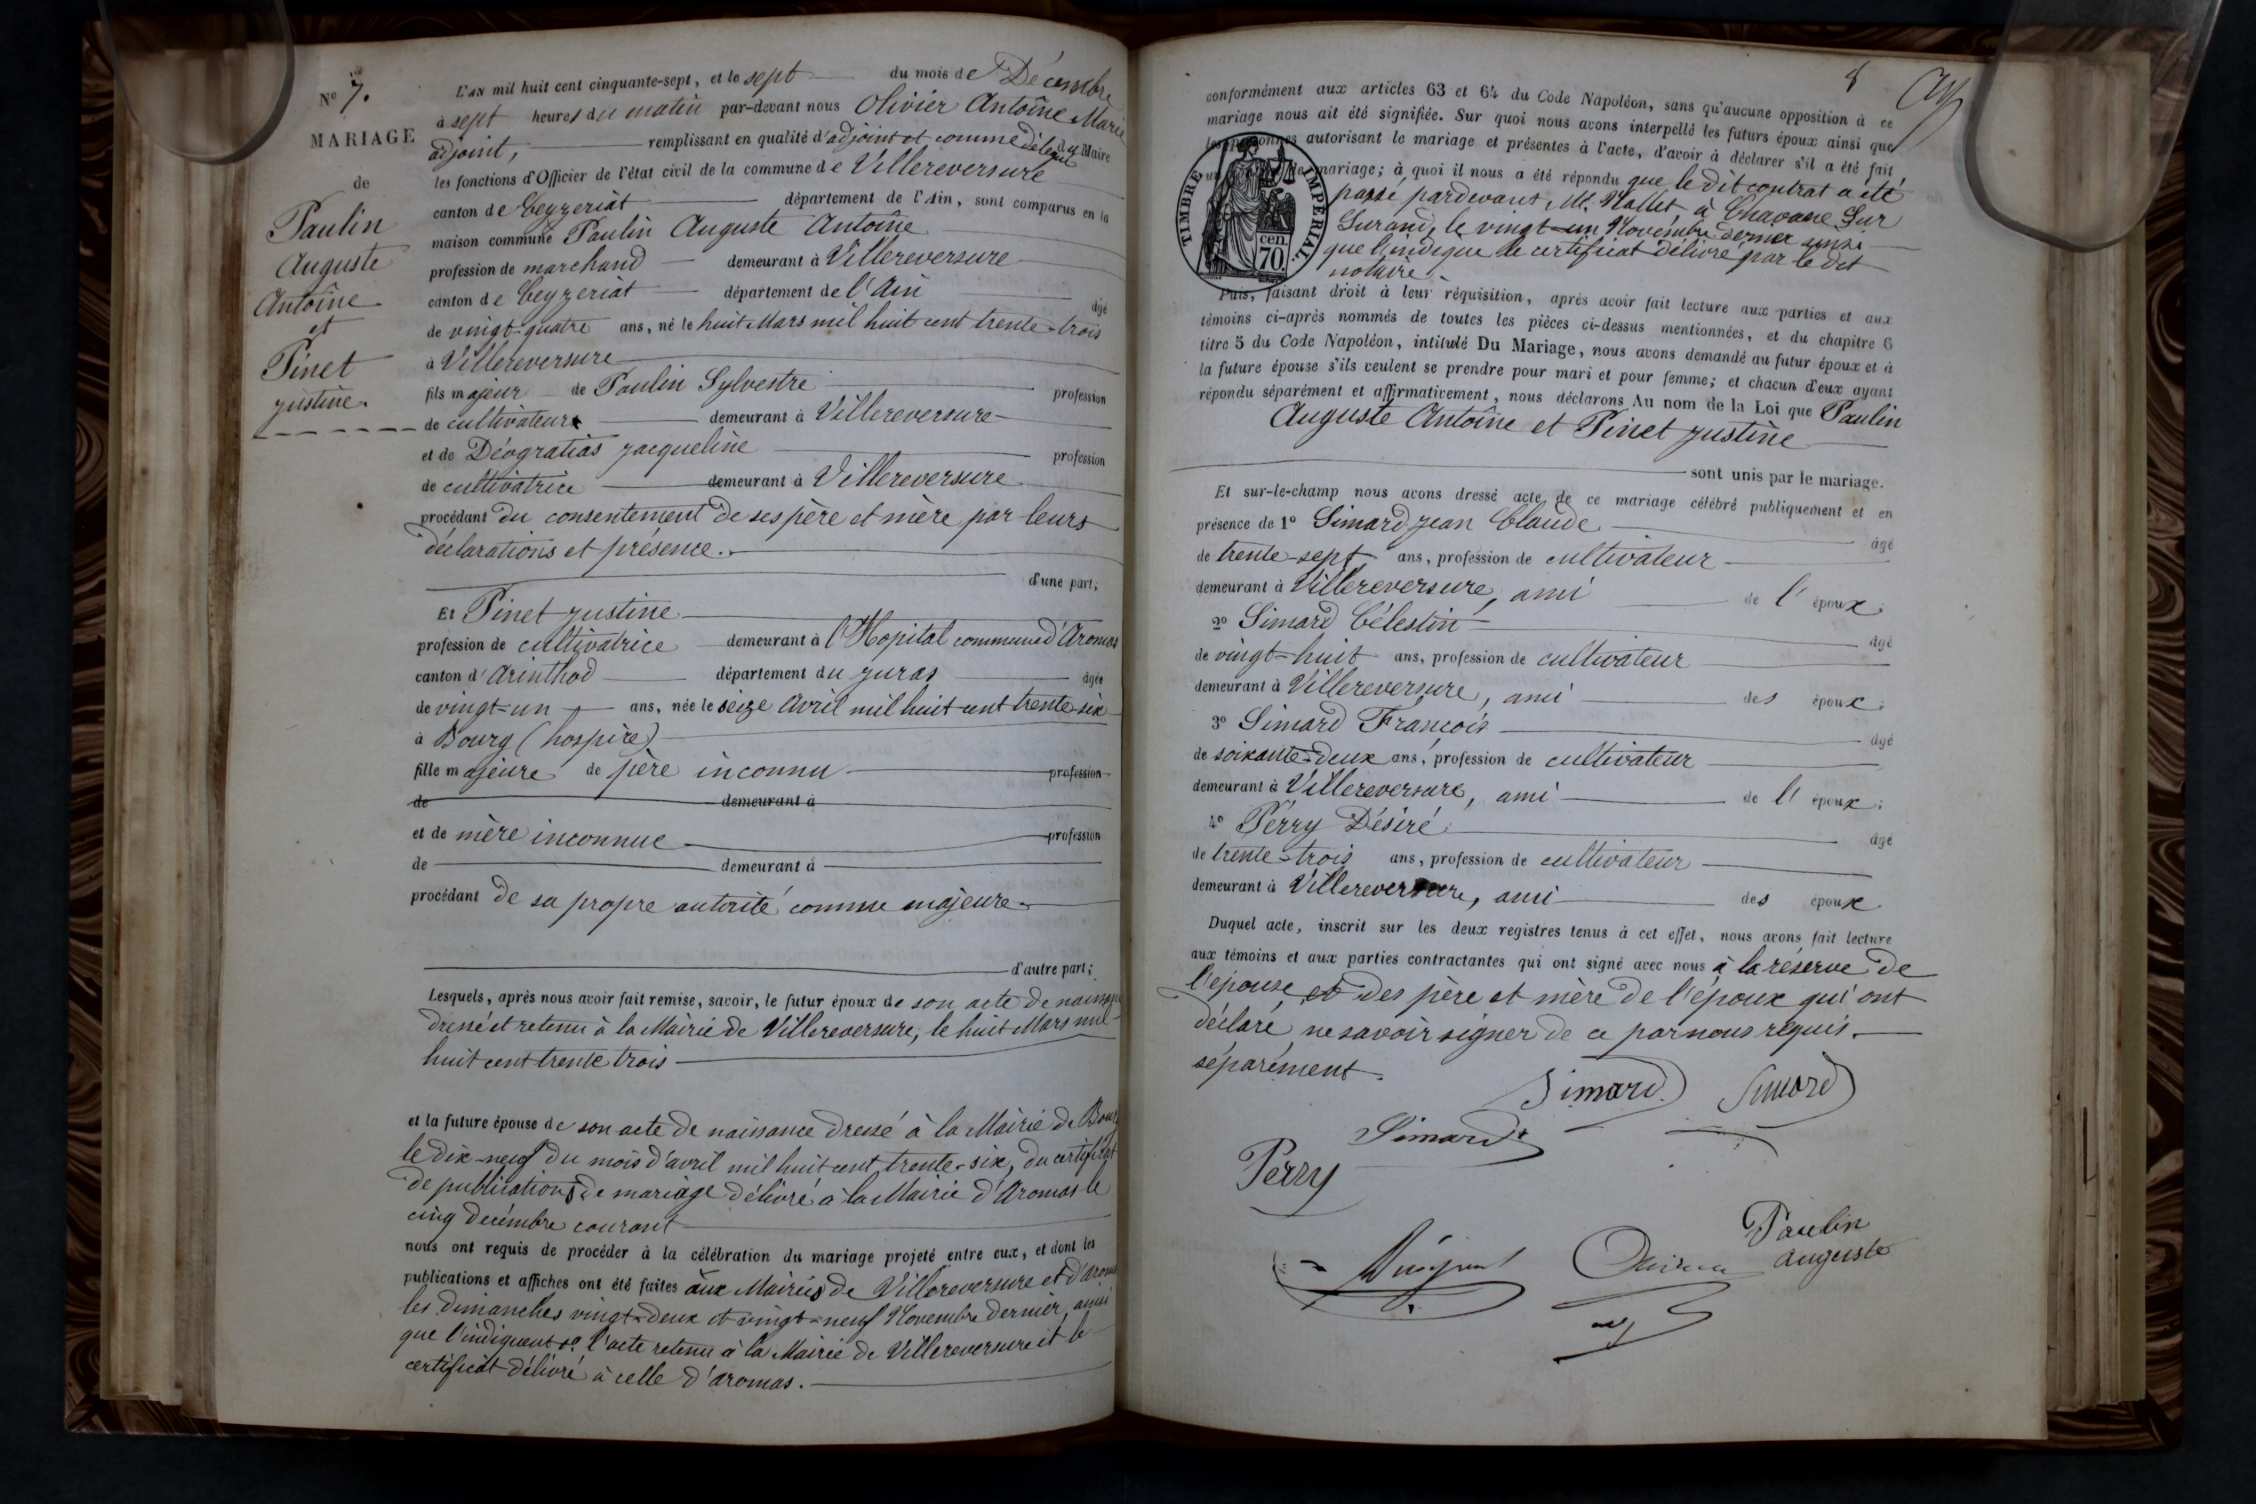 N° 7.
MARIAGE
de
Paulin
Auguste
Antoîne
et
Pinet
justine.
L'AN mil huit cent cinquante-sept, et le sept du mois de Décembre
à sept heures du matin par-devant nous Olivier Antoîne Marie
adjoint, remplissant en qualité d'adjoint et comme délégué du Maire
les fonctions d'Officier de l'état civil de la commune de Villereversure
canton de Ceyzeriat département de l'Ain, sont comparus en la
maison commune Paulin Auguste Antoîne
profession de marchand demeurant à Villereversure
canton de Ceyzeriat département de l'Ain âgé
de vingt-quatre ans, né le huit Mars mil huit cent trente-trois
à Villereversure
fils majeur de Paulin Sylvestre profession
de cultivateur demeurant à Villereversure
et de Déogratias jacqueline profession
de cultivatrice demeurant à Villereversure
procédant du consentement de ses père et mère par leurs
déclarations et présence.
d'une part;
Et Pinet justine
profession de cultivatrice demeurant à l'Hopital commune d'Aromas
canton d'Arinthod département du juras âgée
de vingt-un ans, née le seize Avril mil huit cent trente-six
à Bourg (hospice)
fille majeure de père inconnu profession
de demeurant à
et de mère inconnue profession
de demeurant à
procédant de sa propre autorité comme majeure
d'autre part;
Lesquels, après nous avoir fait remise, savoir, le futur époux de son acte de naissance
dressé et retenu à la Mairie de Villereversure, le huit Mars mil
huit cent trente trois
et la future épouse de son acte de naissance dressé à la Mairie de Bourg
le dix-neuf du mois d'avril mil huit cent trente-six, du certificat
de publications de mariage délivré à la Mairie d'Aromas le
cinq decémbre courant
nous ont requis de procéder à la célébration du mariage projeté entre eux, et dont les
publications et affiches ont été faites aux Mairies de Villereversure et d'Aromas
les dimanches vingt-deux et vingt-neuf Novembre dernier, ainsi
que l'indiquent 1° l'acte retenu à la Mairie de Villereversure et le
certificat délivré à celle d'aromas.
8
conformément aux articles 63 et 64 du Code Napoléon, sans qu'aucune opposition à ce
mariage nous ait été signifiée. Sur quoi nous avons interpellé les futurs époux ainsi que
les personnes autorisant le mariage et présentes à l'acte, d'avoir à déclarer s'il a été fait
un de mariage; à quoi il nous a été répondu que le dit contrat a été
passé pardevant Me. Mallet à Chavane Sur
Surand, le vingt-un Novembre dernier ainsi
que l'indique le certificat délivré par le dit
notaire.
TIMBRE IMPÉRIAL
cen.
70.
Puis, faisant droit à leur réquisition, après avoir fait lecture aux parties et aux
témoins ci-après nommés de toutes les pièces ci-dessus mentionnées, et du chapitre 6
titre 5 du Code Napoléon, intitulé Du Mariage, nous avons demandé au futur époux et à
la future épouse s'ils veulent se prendre pour mari et pour femme; et chacun d'eux ayant
répondu séparément et affirmativement, nous déclarons Au nom de la Loi que Paulin
Auguste Antoîne et Pinet justine
sont unis par le mariage.
Et sur-le-champ nous avons dressé acte de ce mariage célébré publiquement et en
présence de 1° Simard jean Claude âgé
de trente-sept ans, profession de cultivateur
demeurant à Villereversure, ami de l'époux;
2° Simard Célestin âgé
de vingt-huit ans, profession de cultivateur
demeurant à Villereversure, ami des époux;
3° Simard François âgé
de soixante-deux ans, profession de cultivateur
demeurant à Villereversure, ami de l'époux;
4° Pérry Désiré âgé
de trente-trois ans, profession de cultivateur
demeurant à Villereversure, ami des époux
Duquel acte, inscrit sur les deux registres tenus à cet effet, nous avons fait lecture
aux témoins et aux parties contractantes qui ont signé avec nous à la réserve de
l'épouse et des père et mère de l'époux qui ont
déclaré ne savoir signer de ce par nous réquis.
séparément.
Simard Simard
Simard
Perry
Paulin
auguste